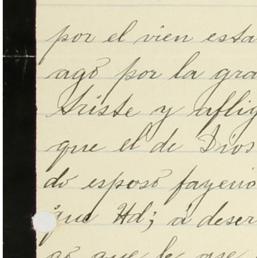 por el vien esta
ago por la gra
triste y aflig
que el de Dios
do esposo fayecio
que Hd; á deser
go que le ase